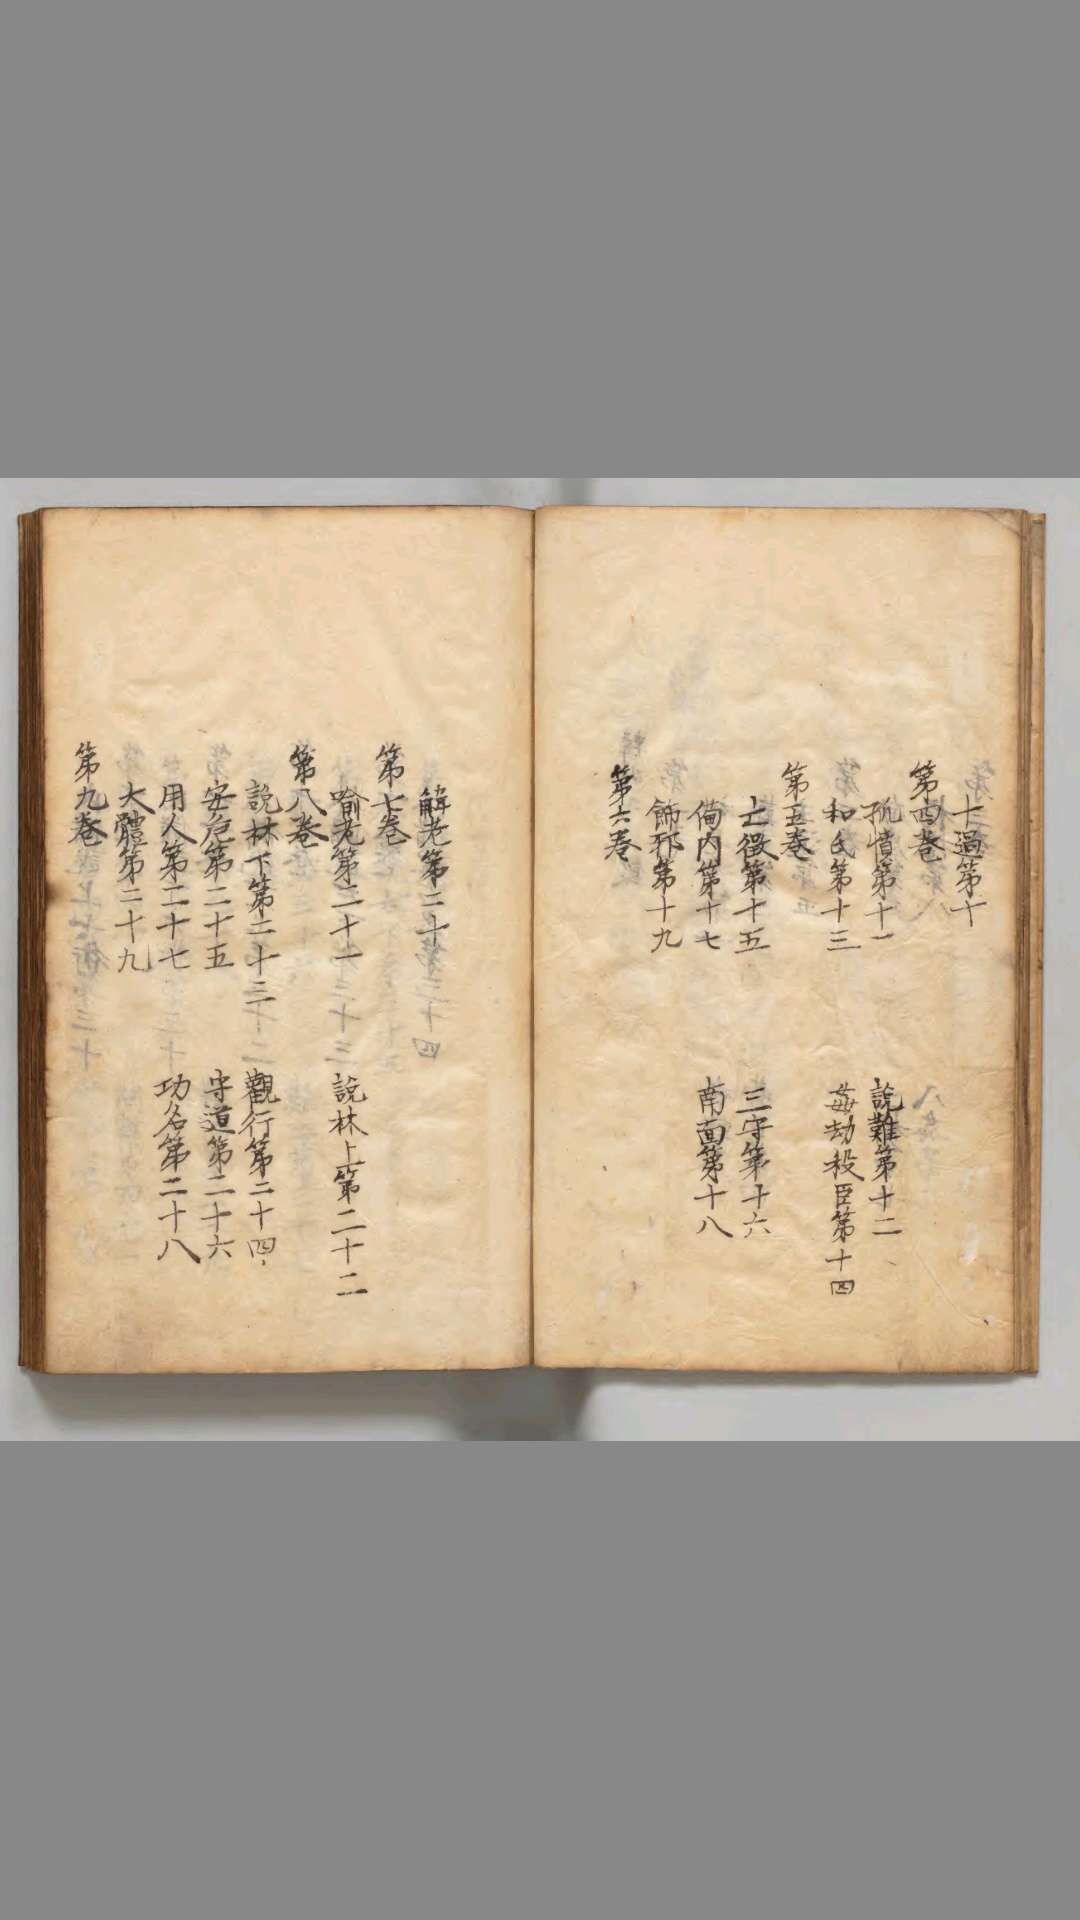 十過第十
第四卷
孤憤第十一
說難第十二
和氏第十三
姦劫殺臣第十四
第五卷
亡徵第十五
三守第十六
俻内第十七
南面第十八
飾邪第十九
第六卷
解老第二十
第七卷
喻老第二十一
說林上第二十二
第八卷
說林下第二十三
觀行第二十四
安危第二十五
守道第二十六
用人第二十七
功名第二十八
大體第二十九
第九卷